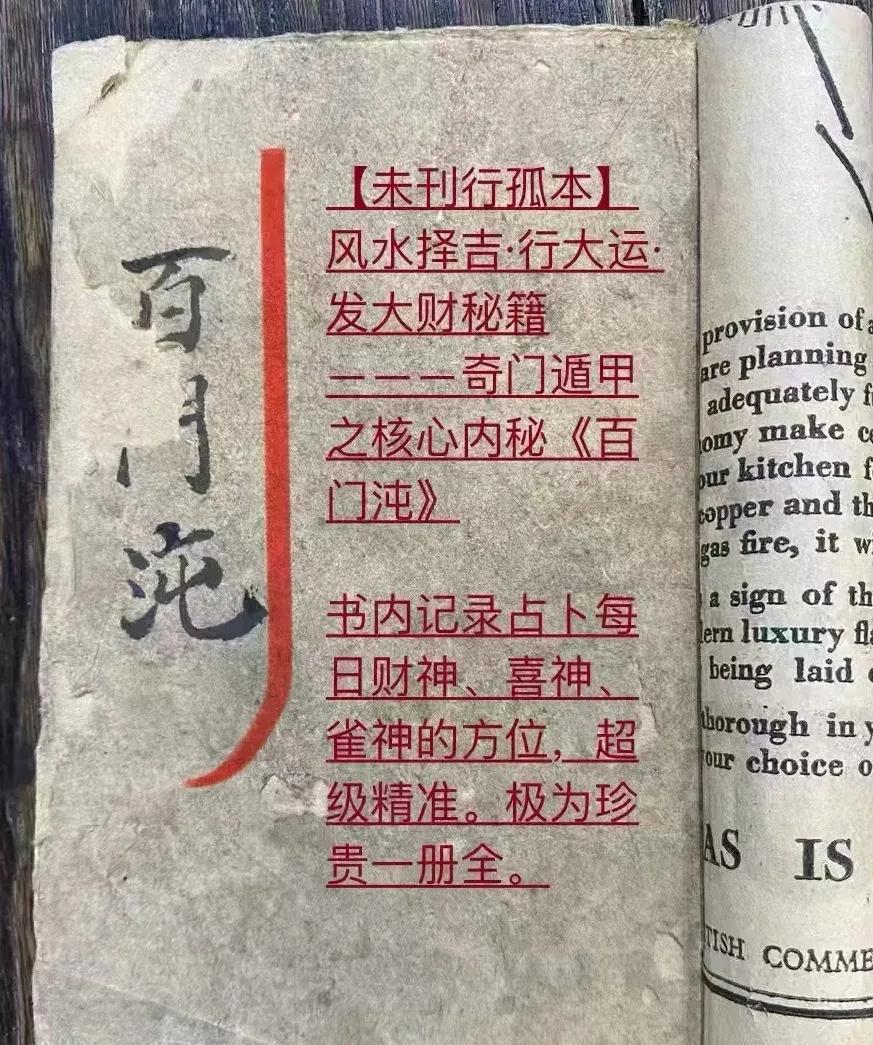 百门沌
【未刊行孤本】
风水择吉·行大运·
发大财秘籍
———奇门遁甲
之核心内秘《百
门沌》
书内记录占卜每
日财神、喜神、
雀神的方位，超
级精准。极为珍
贵一册全。
provision of
are planning
adequately
make
our kitchen
copper and
gas fire, it
a sign of
luxury
being laid
thorough in
your choice
IS
COMME